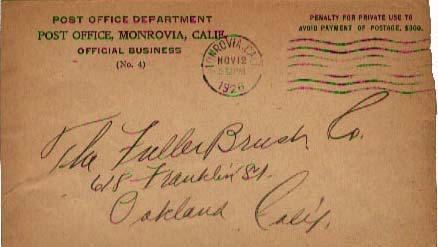 POST OFFICE DEPARTMENT
POST OFFICE, MONROVIA, CALIF.
OFFICIAL BUSINESS
(No. 4)
MONROVIA, CAL
NOV 12
PM
1926
PENALTY FOR PRIVATE USE TO
AVOID PAYMENT OF POSTAGE, $300.
The Fuller Brush Co.
618 Franklin St.
Oakland Calif.